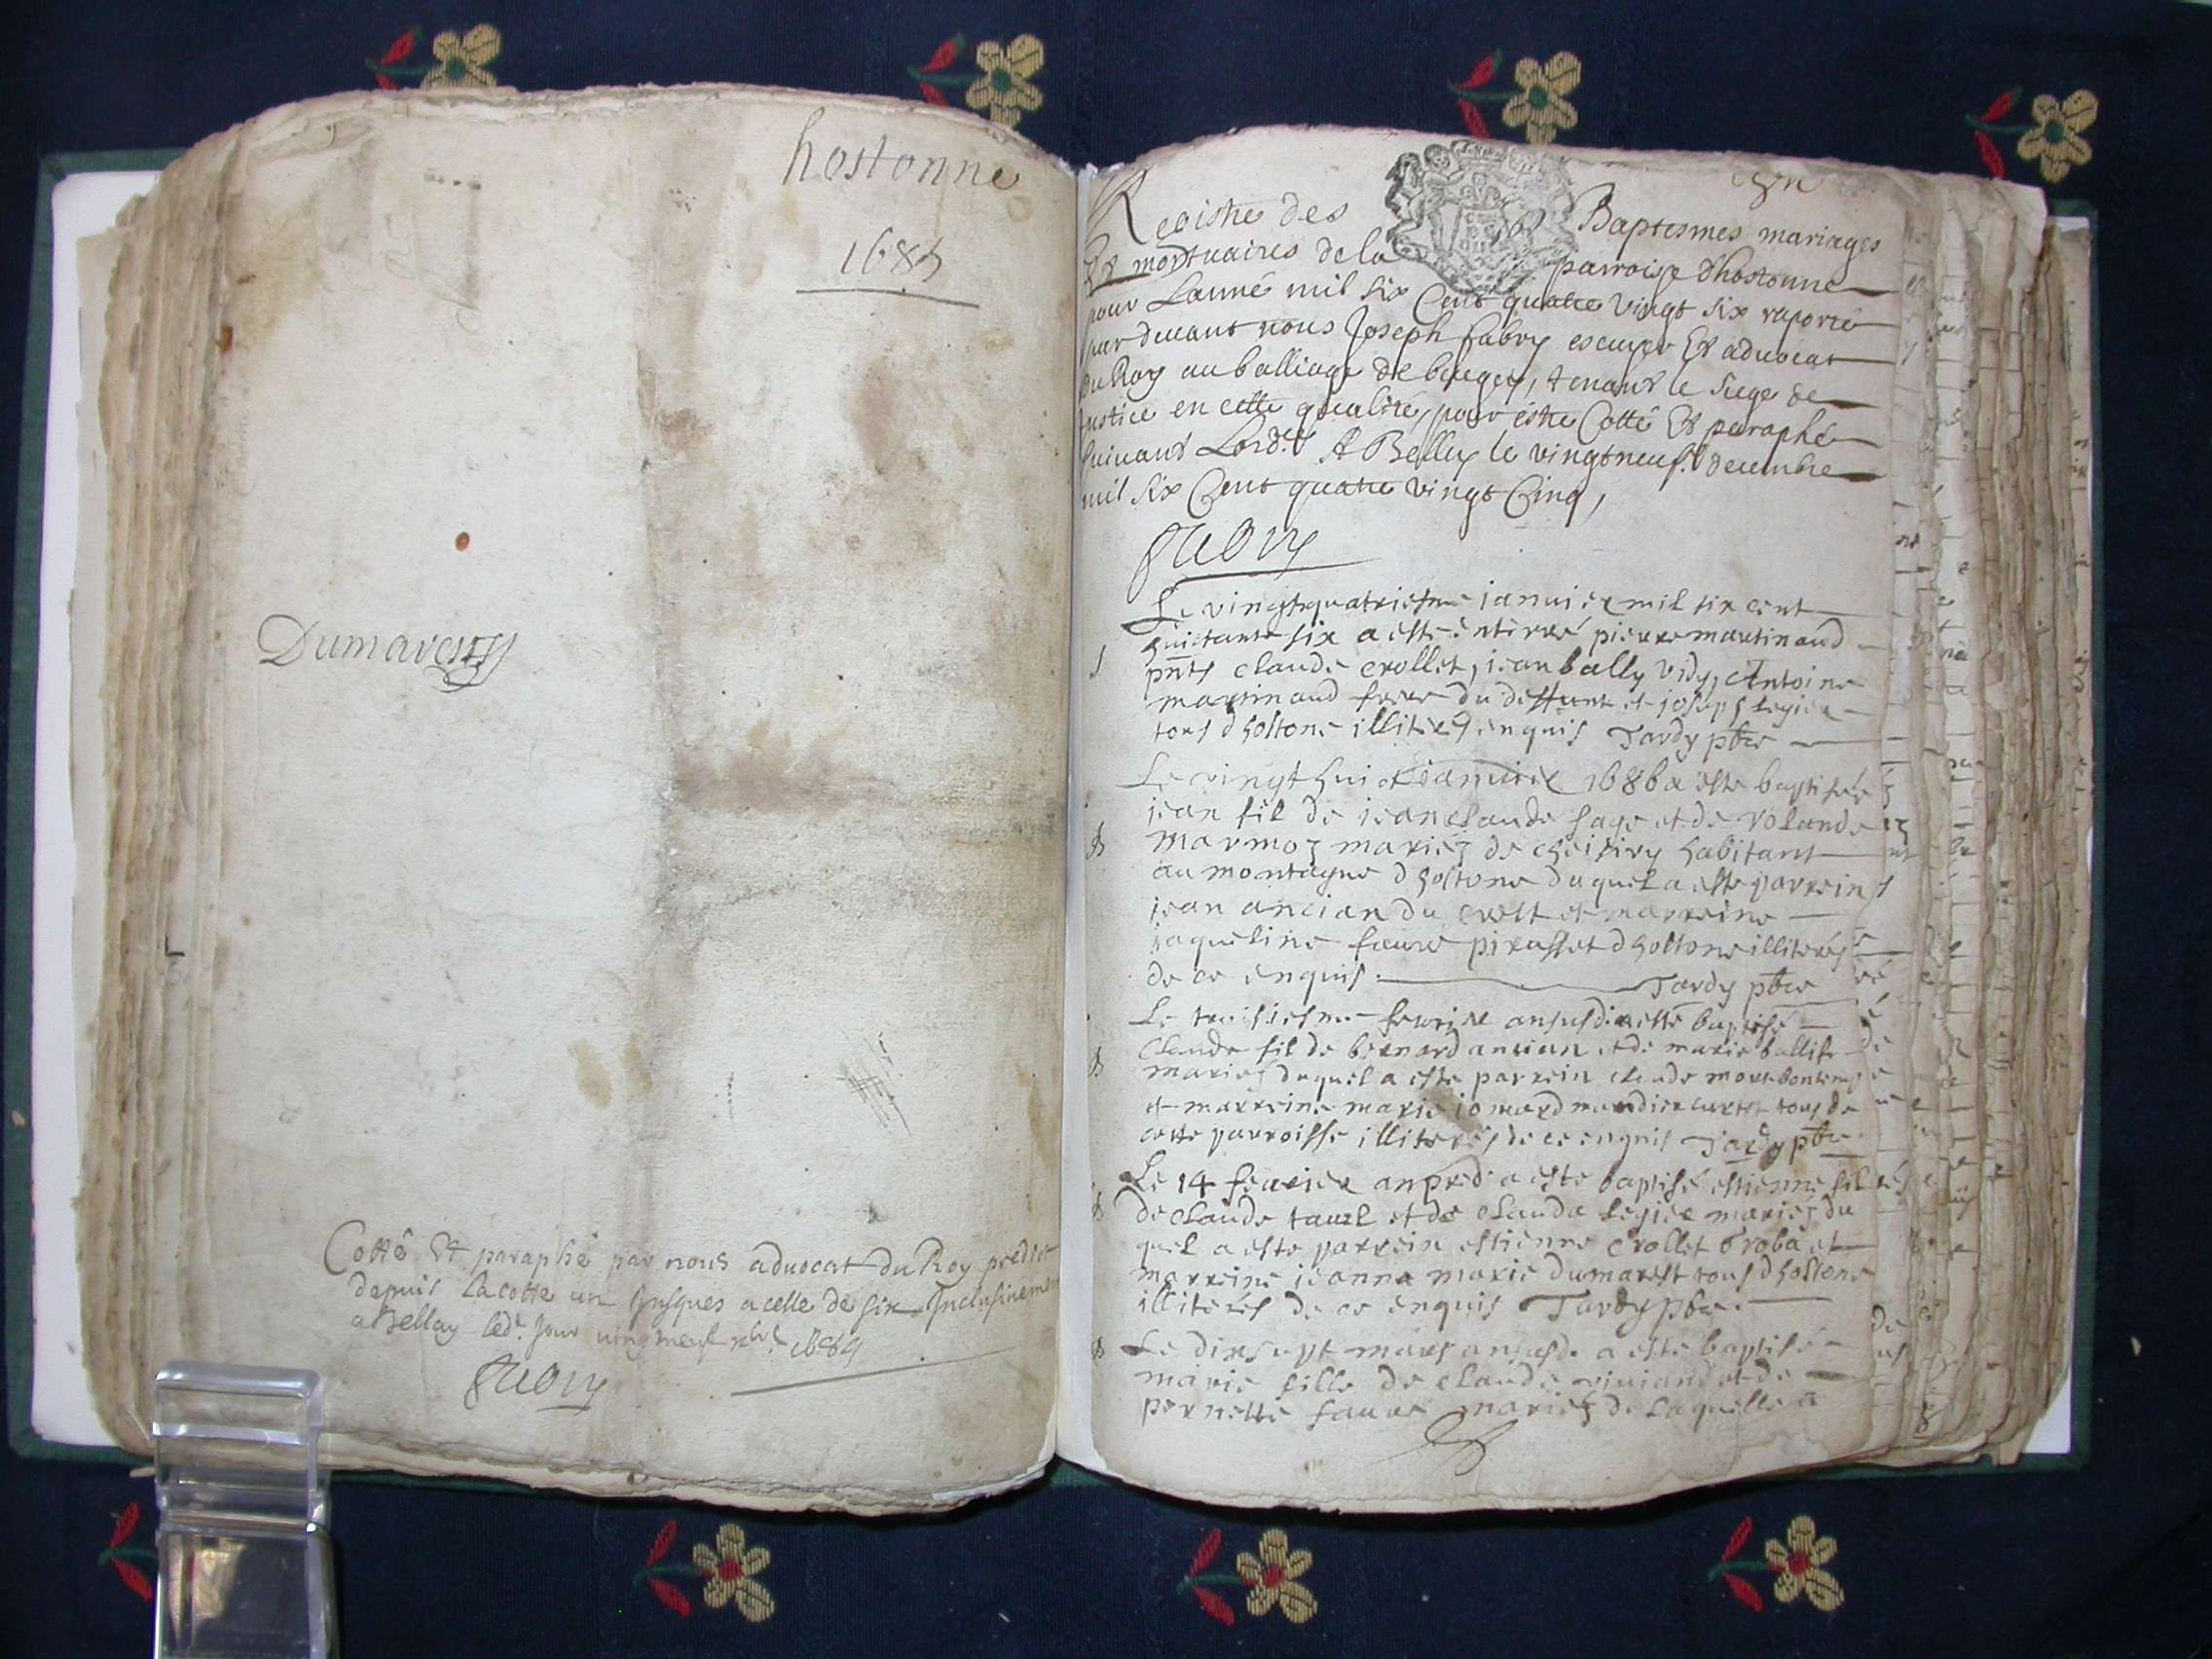 hostonne
1685
Dumarest
Cotté Et paraphé par nous advocat du Roy predict
depuis la cotte un Jusques a celle de six Inclusivement
a Bellay led. jour vingtneuf xbre 1684
Fabry
un
Registre des Baptesmes mariages
Et mortuaires de la parroisse dhostonne
pour Lanné mil six Cent quatre vingt six raporté
par devant nous Joseph fabry escuyer Et advocat
Du Roy au balliage de beugey, tenant le siege de
Justice en cette qualité, pour estre Cotté Et paraphé
suivant Lord.ce A Belley le vingtneuf.e decembre
mil six Cent quatre vingt Cinq,
Fabry
Le vingtquatriesme ianvier mil six cent
huictante six a esté enterré pierre martinand
pnts claude crollet, iean bally vidy, Antoine
martinand frere du deffunt et joseph legier
tous dhostone illiterés enquis Tardy pbre
Le vingt huict ianvier 1686 a esté baptisé
jean fil de iean claude sage et de rolande
marmoz mariez de cheisiry habitant
au montagne dhostone duquel a esté parrein
jean ancian du crest et marreine
jaqueline faure pirasset dhostone illiterés
de ce enquis. Tardy pbre
Le troisiesme fevrier an susd. a esté baptisé
claude fil de bernard ancian et de marie ballife
mariez duquel a esté parrein claude morebontemps
et marreine marie iomard tous de
cette parroisse illiterés de ce enquis Tardy pbre
Le 14 fevrier an pred. a esté baptisé estienne fil
de claude tavel et de claude legier mariez du
quel a esté parrein estienne crollet broba et
marreine ieanne marie dumarest tous dhostone
illiterés de ce enquis Tardy pbre.
Le dixsept mars an susd. a esté baptisé
marie fille de claude viviand et de
pernette faure mariez de laquelle a